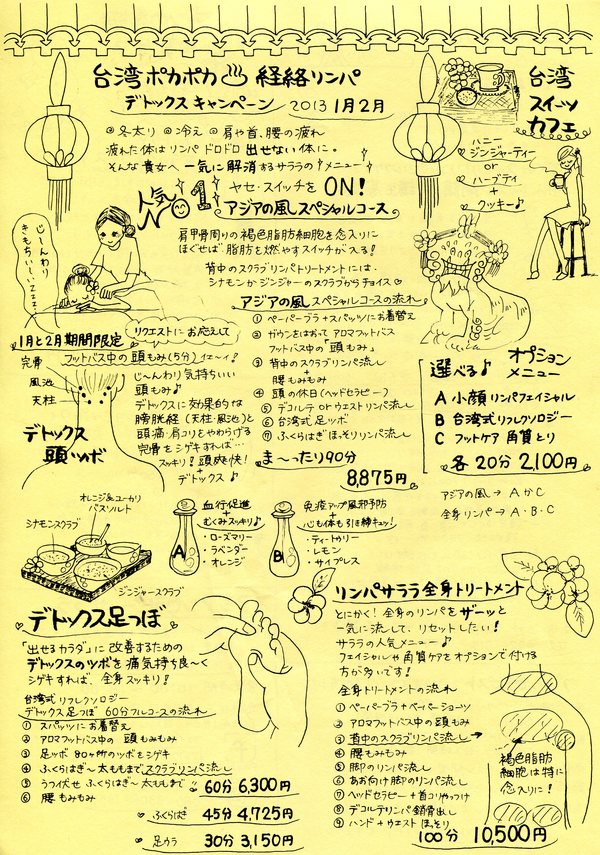 台湾ポカポカ♨経絡リンパ
デトックスキャンペーン 2013 1月2月
◎冬太り ◎冷え ◎肩や首、腰の疲れ
疲れた体は リンパ ドロドロ 出せない体に。
そんな貴女へ 一気に解消するサララのメニュー
人気 1
ヤセ・スイッチを ON!
アジアの風スペシャルコース
肩甲骨周りの 褐色脂肪細胞を念入りに
ほぐせば 脂肪を燃やすスイッチが入る!
背中のスクラブリンパトリートメントには
シナモンか ジンジャーの スクラブから チョイス♡
台湾
スイーツ
カフェ
ハニー
ジンジャーティー
or
ハーブティ
+
クッキー♪
じ〜んわり
きもちいい〜
zzz
1月と2月期間限定
リクエストにお応えして
フットバス中の 頭もみ(5分) イェ〜イ!
完骨
風池
天柱
デトックス
頭ツボ
じ〜んわり 気持ちいい
頭もみ♪
デトックスに効果的な
膀胱経(天柱・風池)と
頭痛・肩コリをやわらげる
完骨をシゲキすれば…
スッキリ! 頭爽快!
+
デトックス♪
アジアの風スペシャルコースの流れ
① ペーパーブラ+スパッツにお着替え
② ガウンをはおって アロマフットバス
フットバス中の「頭もみ」
③ 背中のスクラブリンパ流し
+
腰もみもみ
④ 頭の休日(ヘッドセラピー)
⑤ デコルテ or ウエストリンパ流し
⑥ 台湾式 足ツボ
⑦ ふくらはぎほっそりリンパ流し
ま〜ったり90分
8,875円
選べる♪ オプション
メニュー
A 小顔リンパフェイシャル
B 台湾式リフレクソロジー
C フットケア 角質とり
各20分 2,100円
アジアの風 → A か C
全身リンパ → A・B・C
オレンジ&ユーカリ
バスソルト
シナモンスクラブ
ジンジャースクラブ
A
血行促進
+
むくみスッキリ♪
・ローズマリー
・ラベンダー
・オレンジ
B
免疫アップ風邪予防
+
心も体も引き締キュッ!
・ティートゥリー
・レモン
・サイプレス
デトックス足つぼ
「出せるカラダ」に 改善するための
デトックスのツボを 痛気持ち良〜く
シゲキすれば、全身スッキリ!
台湾式リフレクソロジー
デトックス足つぼ 60分フルコースの流れ
① スパッツに お着替え
② アロマフットバス中の 頭もみもみ
③ 足ツボ 80ヶ所のツボをシゲキ
④ ふくらはぎ〜太ももまで スクラブリンパ流し
⑤ うつ伏せ ふくらはぎ〜太ももまで
⑥ 腰もみもみ
60分 6,300円
ふくらはぎ 45分 4,725円
足ウラ 30分 3,150円
リンパサララ全身トリートメント
とにかく! 全身のリンパを ザーッと
一気に流して、リセットしたい!
サララの人気メニュー♪
フェイシャルや角質ケアをオプションで付ける
方が多いです!
全身トリートメントの流れ
① ペーパーブラ+ペーパーショーツ
② アロマフットバス中の 頭もみ
③ 背中のスクラブリンパ流し
④ 腰もみもみ
⑤ 脚のリンパ流し
⑥ あお向け脚のリンパ流し
⑦ ヘッドセラピー+首コリやっつけ
⑧ デコルテリンパ 鎖骨出し
⑨ ハンド+ウエスト ほっそり
褐色脂肪
細胞は特に
念入りに!
100分 10,500円